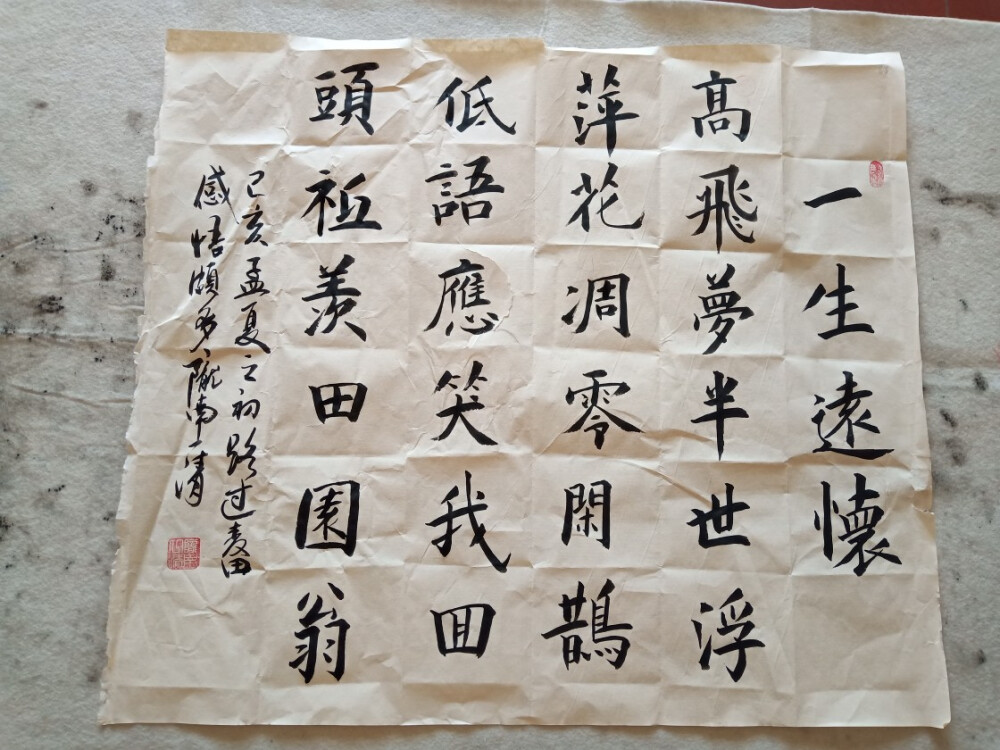 一生遠懷
高飛夢半世浮
萍花凋零閑鵲
低語應笑我回
頭祗羨田園翁
己亥孟夏之初路过麦田
感悟頗多隴南一清